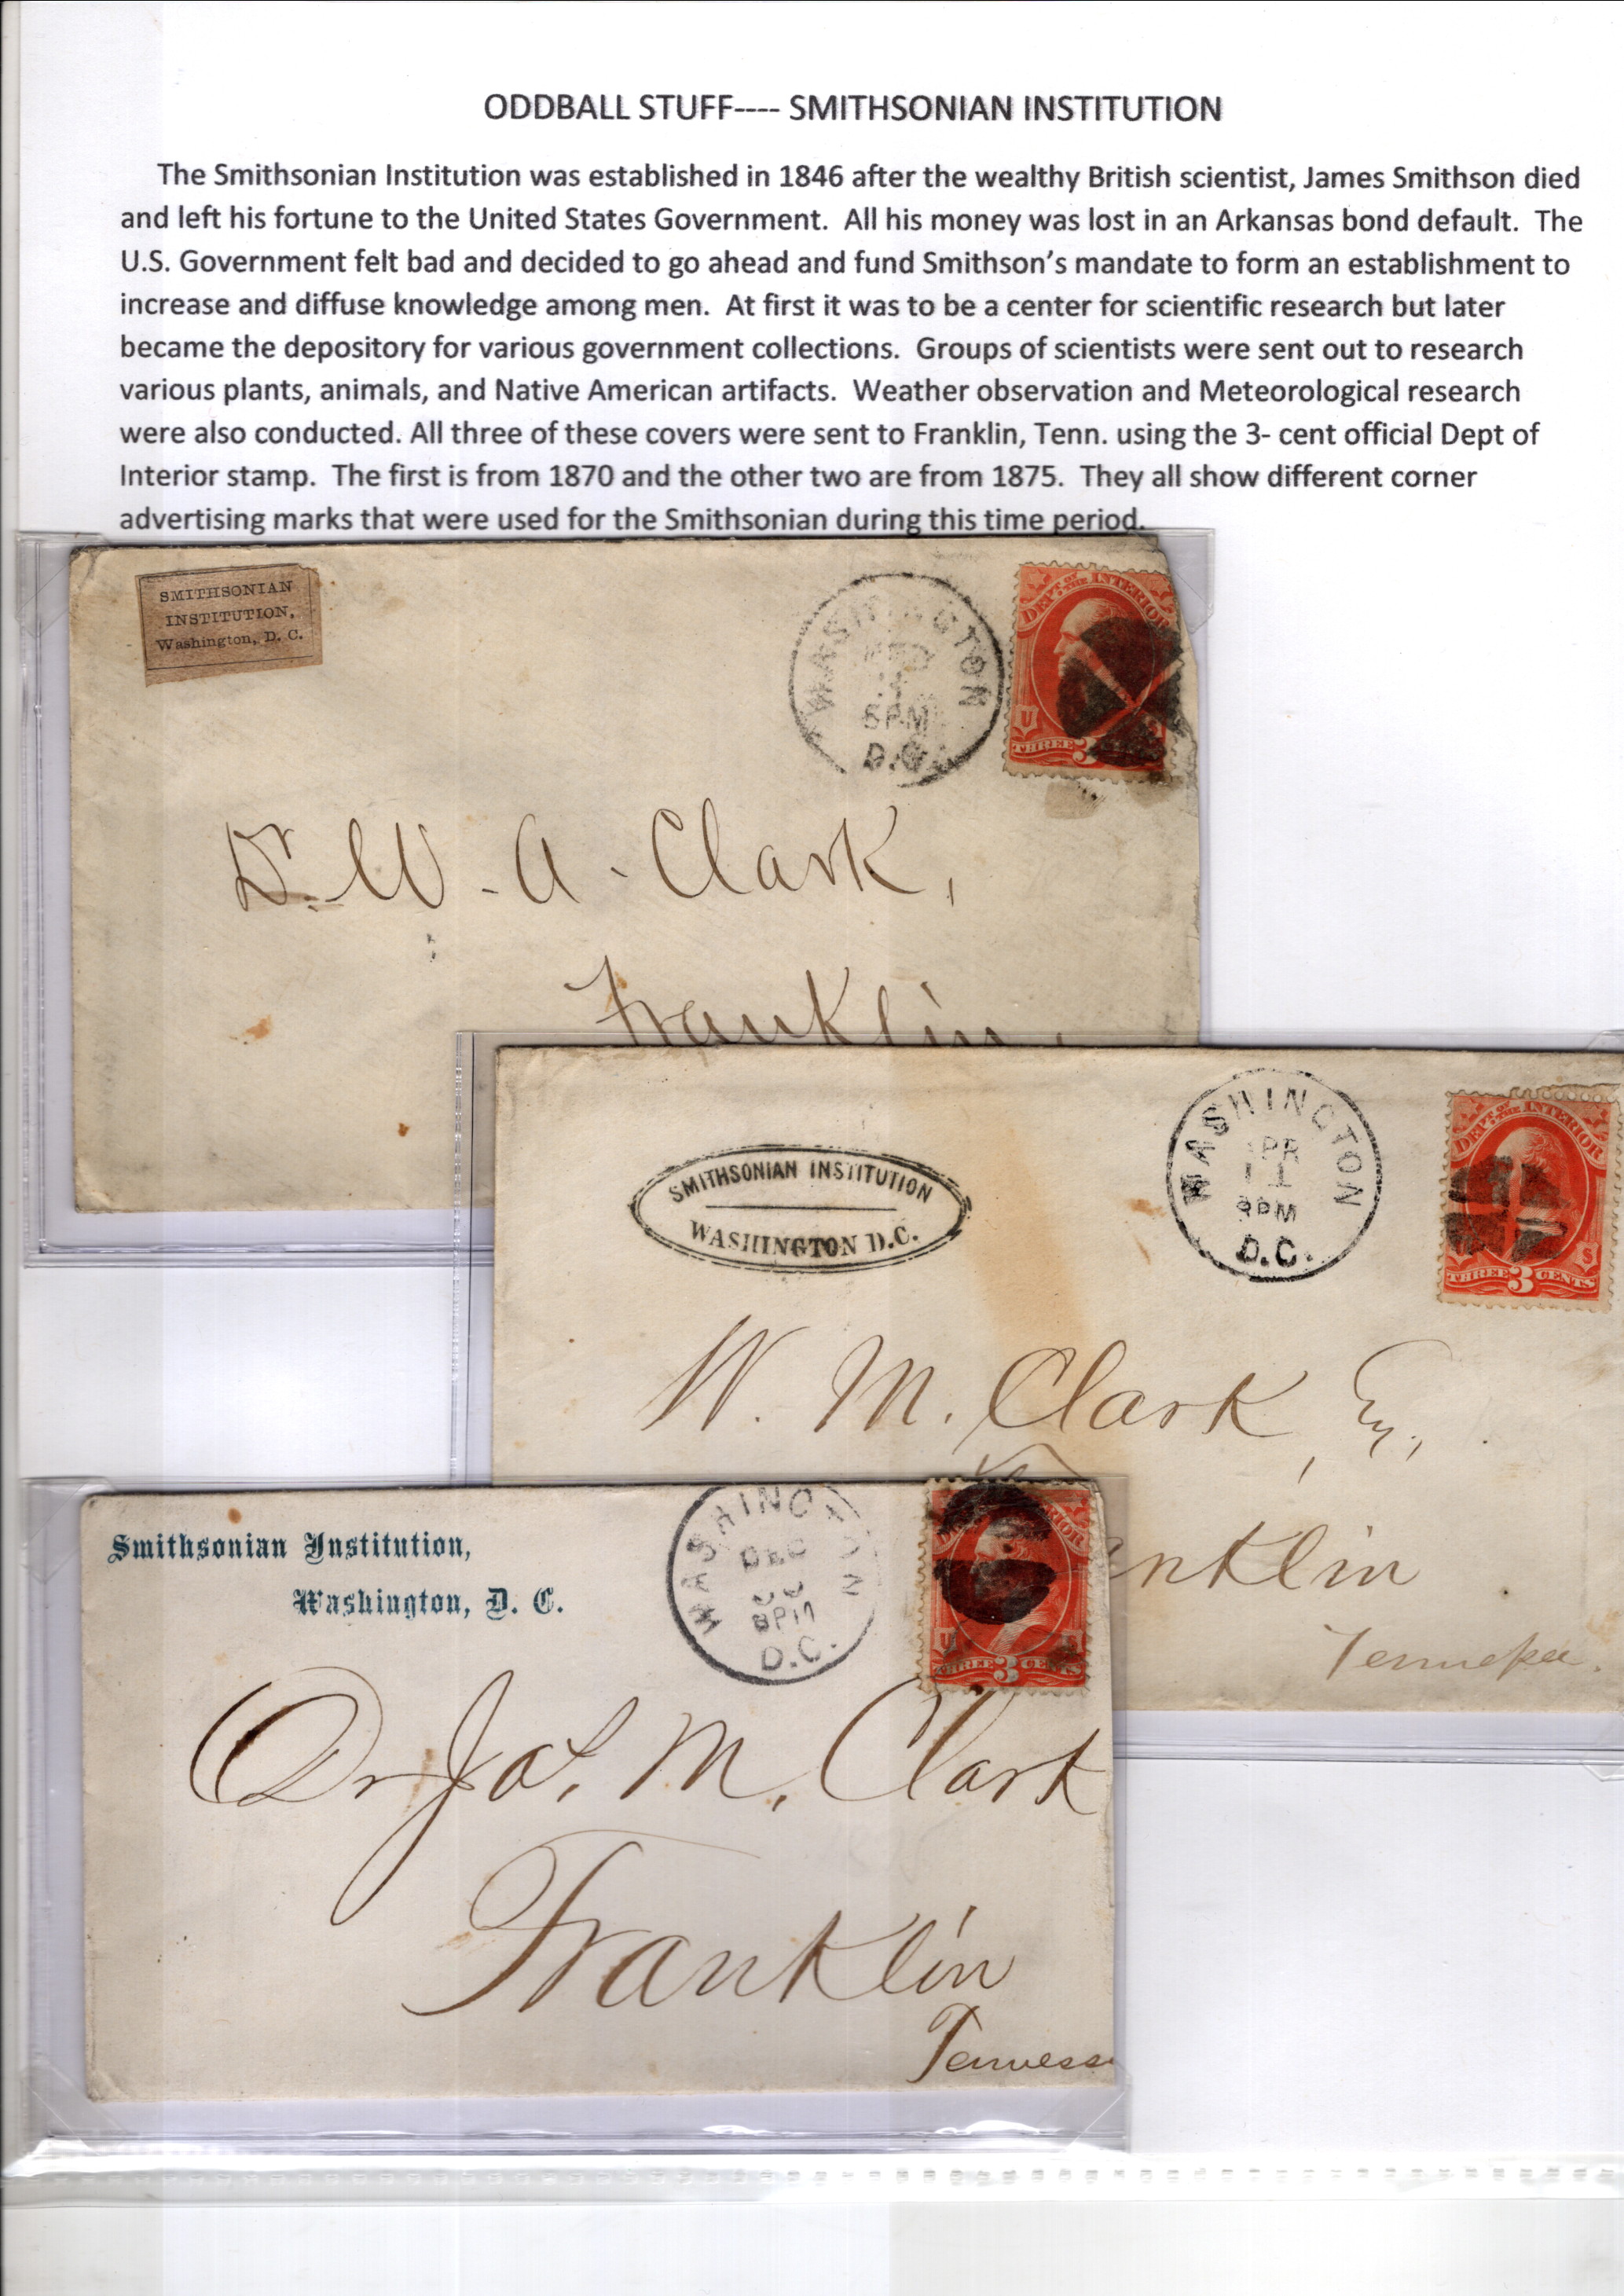 ODDBALL STUFF---- SMITHSONIAN INSTITUTION
The Smithsonian Institution was established in 1846 after the wealthy British scientist, James Smithson died
and left his fortune to the United States Government.  All his money was lost in an Arkansas bond default.  The
U.S. Government felt bad and decided to go ahead and fund Smithson's mandate to form an establishment to
increase and diffuse knowledge among men.  At first it was to be a center for scientific research but later
became the depository for various government collections.  Groups of scientists were sent out to research
various plants, animals, and Native American artifacts.  Weather observation and Meteorological research
were also conducted. All three of these covers were sent to Franklin, Tenn. using the 3- cent official Dept of
Interior stamp.  The first is from 1870 and the other two are from 1875.  They all show different corner
advertising marks that were used for the Smithsonian during this time period.
SMITHSONIAN
INSTITUTION,
Washington, D. C.
WASHINGTON
5PM
D.C.
DEPT. OF THE INTERIOR
U
THREE 3
Dr. W. A. Clark,
Franklin,
SMITHSONIAN INSTITUTION
WASHINGTON D.C.
WASHINGTON
APR
11
D.C.
DEPT. OF THE INTERIOR
S
THREE 3 CENTS
W. M. Clark, Esq.,
nklin
Tennessee.
Smithsonian Institution,
Washington, D. C.
WASHINGTON
DEC
8PM
D.C.
IOR
U
THREE 3 CENTS
Dr Jas. M. Clark
Franklin
Tennesse